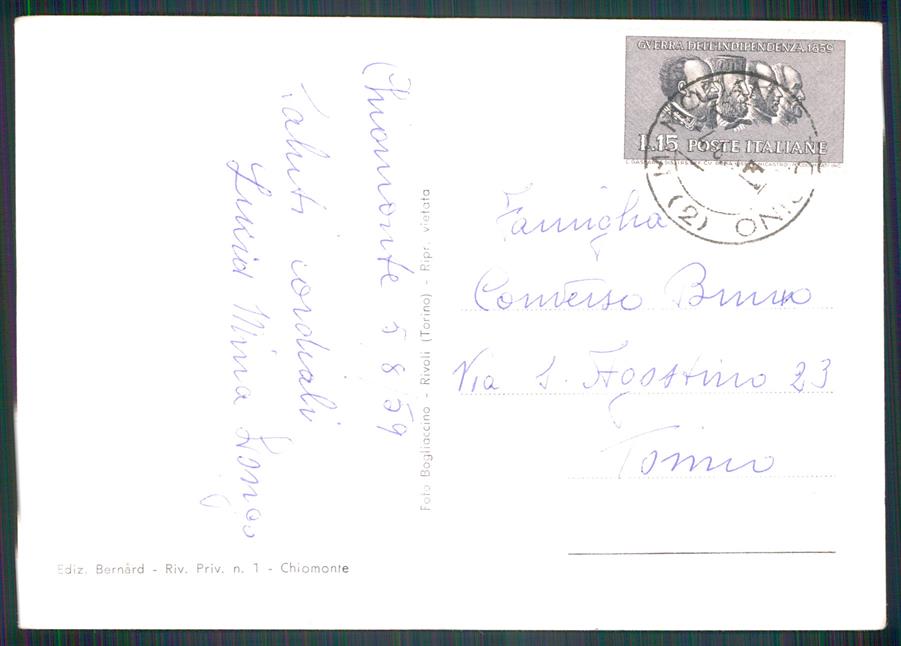 Chiomonte 5 8/59
Saluti cordiali
Foto Bogliaccino - Rivoli (Torino) - Ripr. vietata
Ediz. Bernârd - Riv. Priv. n. 1 - Chiomonte
GVERRA DELL'INDIPENDENZA 1859
L.15 POSTE ITALIANE
Famiglia
Converso Bruno
Via S. Agostino 23
Torino